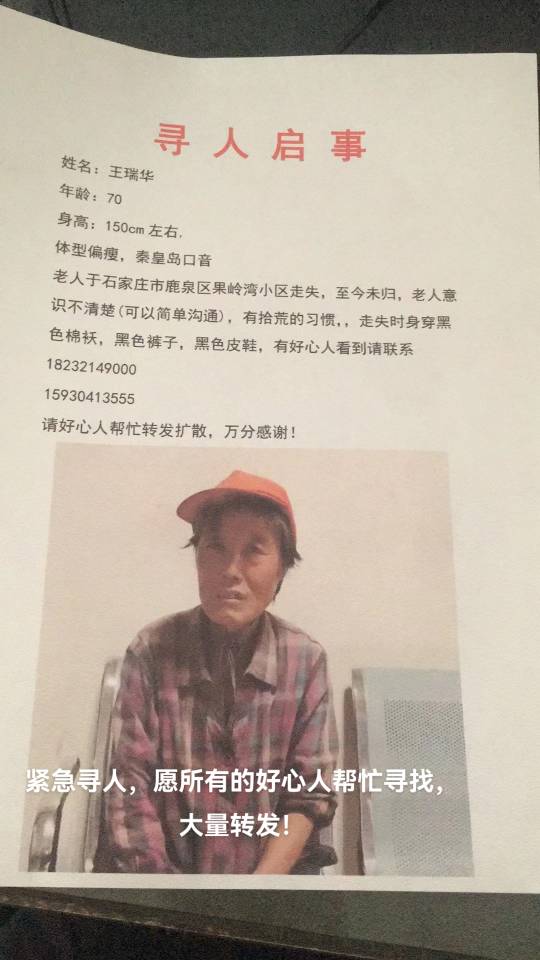 寻人启事
姓名：王瑞华
年龄：70
身高：150cm左右.
体型偏瘦，秦皇岛口音
老人于石家庄市鹿泉区果岭湾小区走失，至今未归，老人意
识不清楚(可以简单沟通)，有拾荒的习惯,，走失时身穿黑
色棉袄，黑色裤子，黑色皮鞋，有好心人看到请联系
18232149000
15930413555
请好心人帮忙转发扩散，万分感谢！
紧急寻人，愿所有的好心人帮忙寻找，
大量转发！